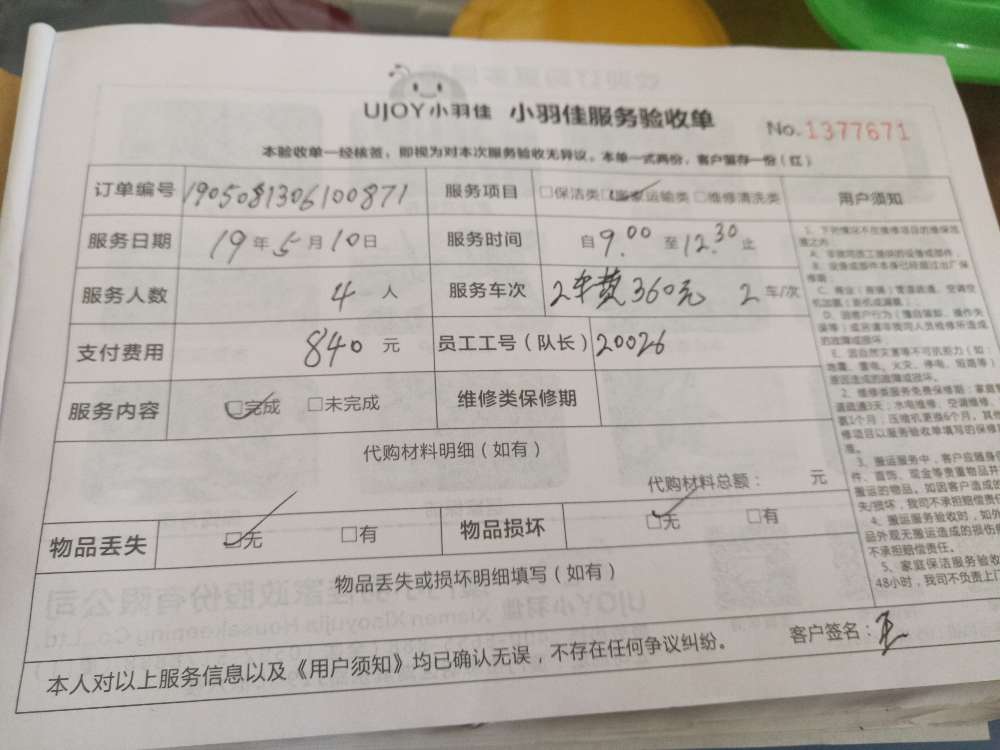 UJOY小羽佳 小羽佳服务验收单 No.1377671
本验收单一经核签，即视为对本次服务验收无异议。本单一式两份，客户留存一份（红）
订单编号 1905081306100871 服务项目 □保洁类 □搬家运输类 □维修清洗类
服务日期 19年5月10日 服务时间 自9.00至12.30止
服务人数 4人 服务车次 2车费360元 2车/次
支付费用 840元 员工工号（队长） 20026
服务内容 □完成 □未完成 维修类保修期
代购材料明细（如有）
代购材料总额： 元
物品丢失 □无 □有 物品损坏 □无 □有
物品丢失或损坏明细填写（如有）
本人对以上服务信息以及《用户须知》均已确认无误，不存在任何争议纠纷。 客户签名：
用户须知
1、下列情况不在维修项目的维保范
围之内：
A、非我司员工提供的设备或部件，
B、设备或部件本身已经超过出厂保
修期
D、因客户行为（擅自装卸、操作失
误等）或另请非我司人员维修所造成
的故障或损坏；
E、因自然灾害等不可抗拒力（如：
地震、雷电、火灾、停电、短路等）
原因造成的故障或损坏。
2、维修类服务免费保修期：家庭管
道疏通3天；水电维修、空调维修、
氨1个月；压缩机更换6个月。其他
修项目以服务验收单填写的保修
准。
3、搬运服务中，客户应随身
件、首饰、现金等贵重物品并
搬运的物品。如因客户造成的
失/损坏，我司不承担赔偿责
4、搬运服务验收时，如外
品外观无搬运造成的损伤
不承担赔偿责任。
5、家庭保洁服务验收
48小时，我司不负责上门